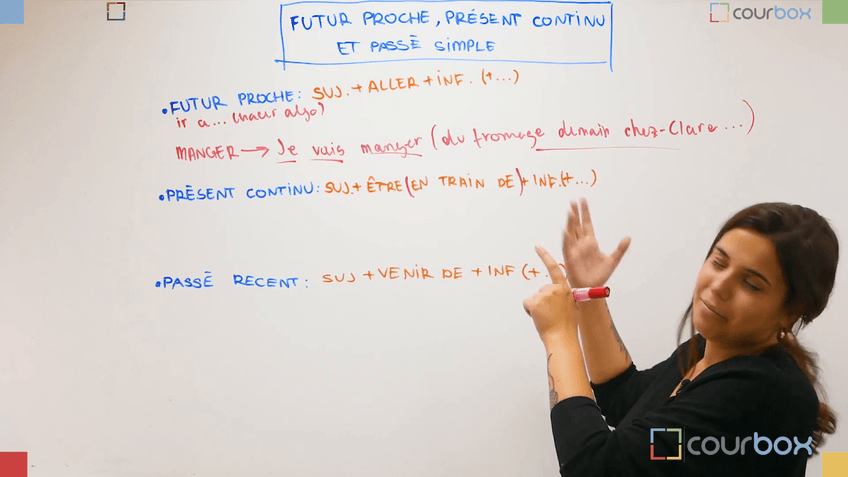 courbox
FUTUR PROCHE, PRÉSENT CONTINU
ET PASSÉ SIMPLE
•FUTUR PROCHE: SUJ. + ALLER + INF. (+...)
ir a... (hacer algo)
MANGER → Je vais manger (du fromage demain chez-Clare...)
•PRÉSENT CONTINU: SUJ. + ÊTRE (EN TRAIN DE) + INF. (+...)
•PASSÉ RECENT: SUJ + VENIR DE + INF (+..)
courbox